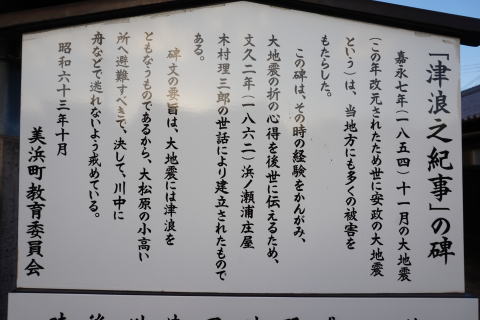 「津浪之紀事」の碑
嘉永七年(一八五四)十一月の大地震
(この年改元されたため世に安政の大地震
という)は、当地方にも多くの被害を
もたらした。
この碑は、その時の経験をかんがみ、
大地震の折の心得を後世に伝えるため、
文久二年(一八六二)浜ノ瀬浦庄屋
木村理三郎の世話により建立されたもので
ある。
碑文の要旨は、大地震には津浪を
ともなうものであるから、大松原の小高い
所へ避難すべきで、決して、川中に
舟などで逃れないよう戒めている。
昭和六十三年十月
美浜町教育委員会